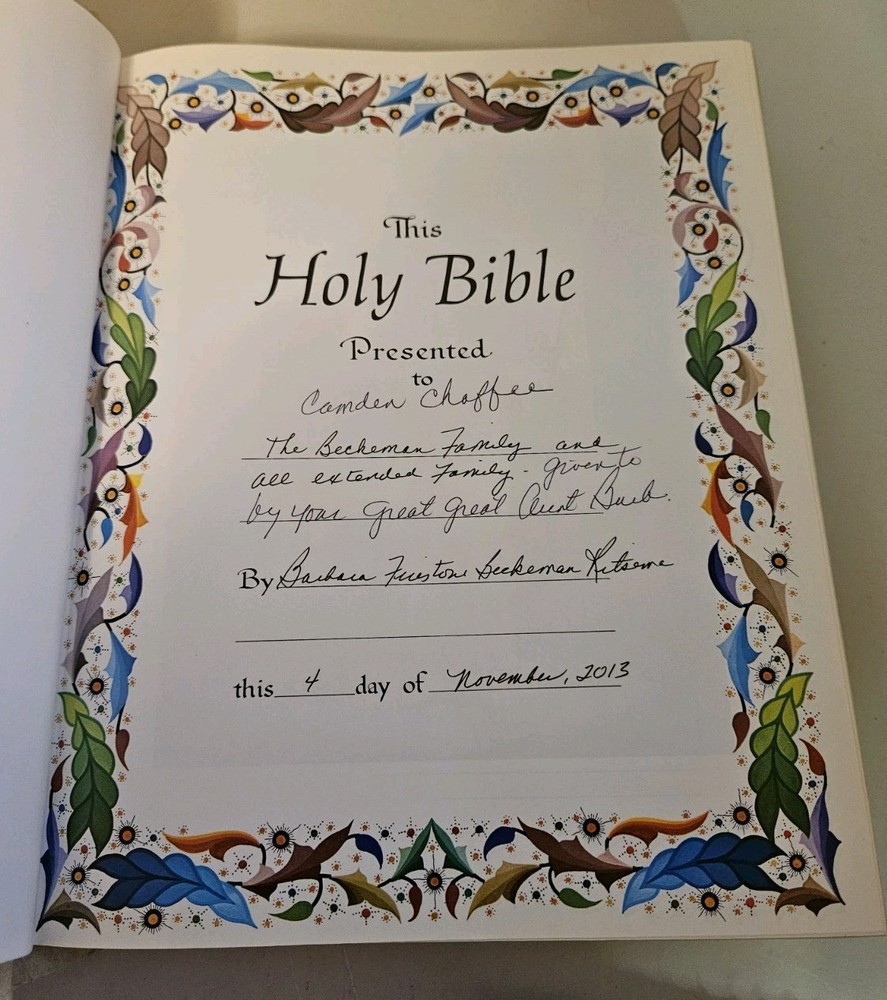 This
Holy Bible
Presented
to
Camden Chaffee
The Beckeman Family and
all extended Family - given to
by your Great Great Aunt Barb.
By Barbara Firestone Beckeman Ritsema
this 4 day of November, 2013